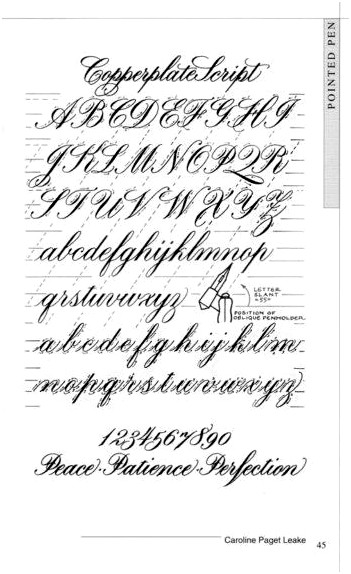 POINTED PEN
Copperplate Script
ABCDEFGHI
JKLMNOPQR
STUVWXYZ
abcdefghijklmnop
qrstuvwxyz
LETTER
SLANT
=55°
POSITION OF
OBLIQUE PENHOLDER
abcdefghijklm
nopqrstuvwxyz
1234567890
Peace·Patience·Perfection
Caroline Paget Leake
45